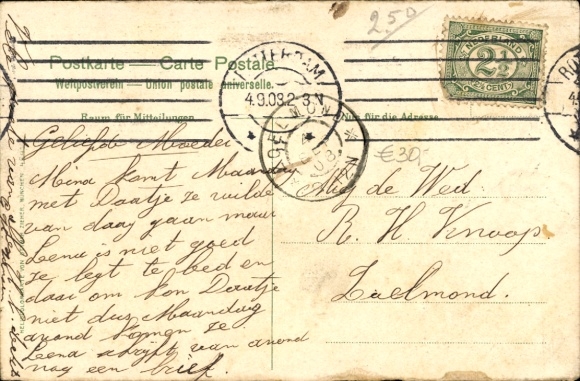 2.50
NEDERLAND
2½
2½ CENT
Postkarte — Carte Postale
Weltpostverein — Union postale universelle.
Raum für Mitteilungen
für die Adresse
TERDAM
4.9.08.2-3
€30,-
Geliefde Moeder
Mina komt Maandag
met Daatje ze wilde
van daag gaan maar
Lena is niet goed
ze legt te bed en
daar om kon Daatje
niet dus Maandag
avond komen ze
Lena schrijft van avond
nog een brief.
de Wed.
R. H Knoop
Zuelmond.